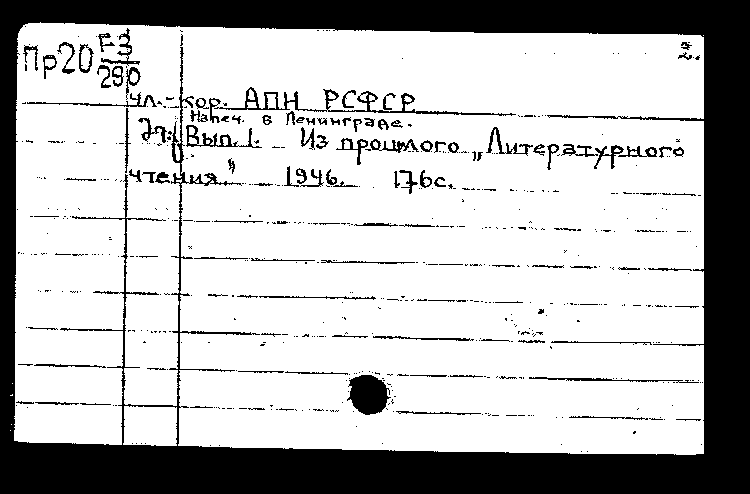 2.
Пр20 F3/290
чл.-кор. АПН РСФСР
Напеч. в Ленинграде.
Вып. 1. Из прошлого „Литературного
чтения." 1946. 176с.